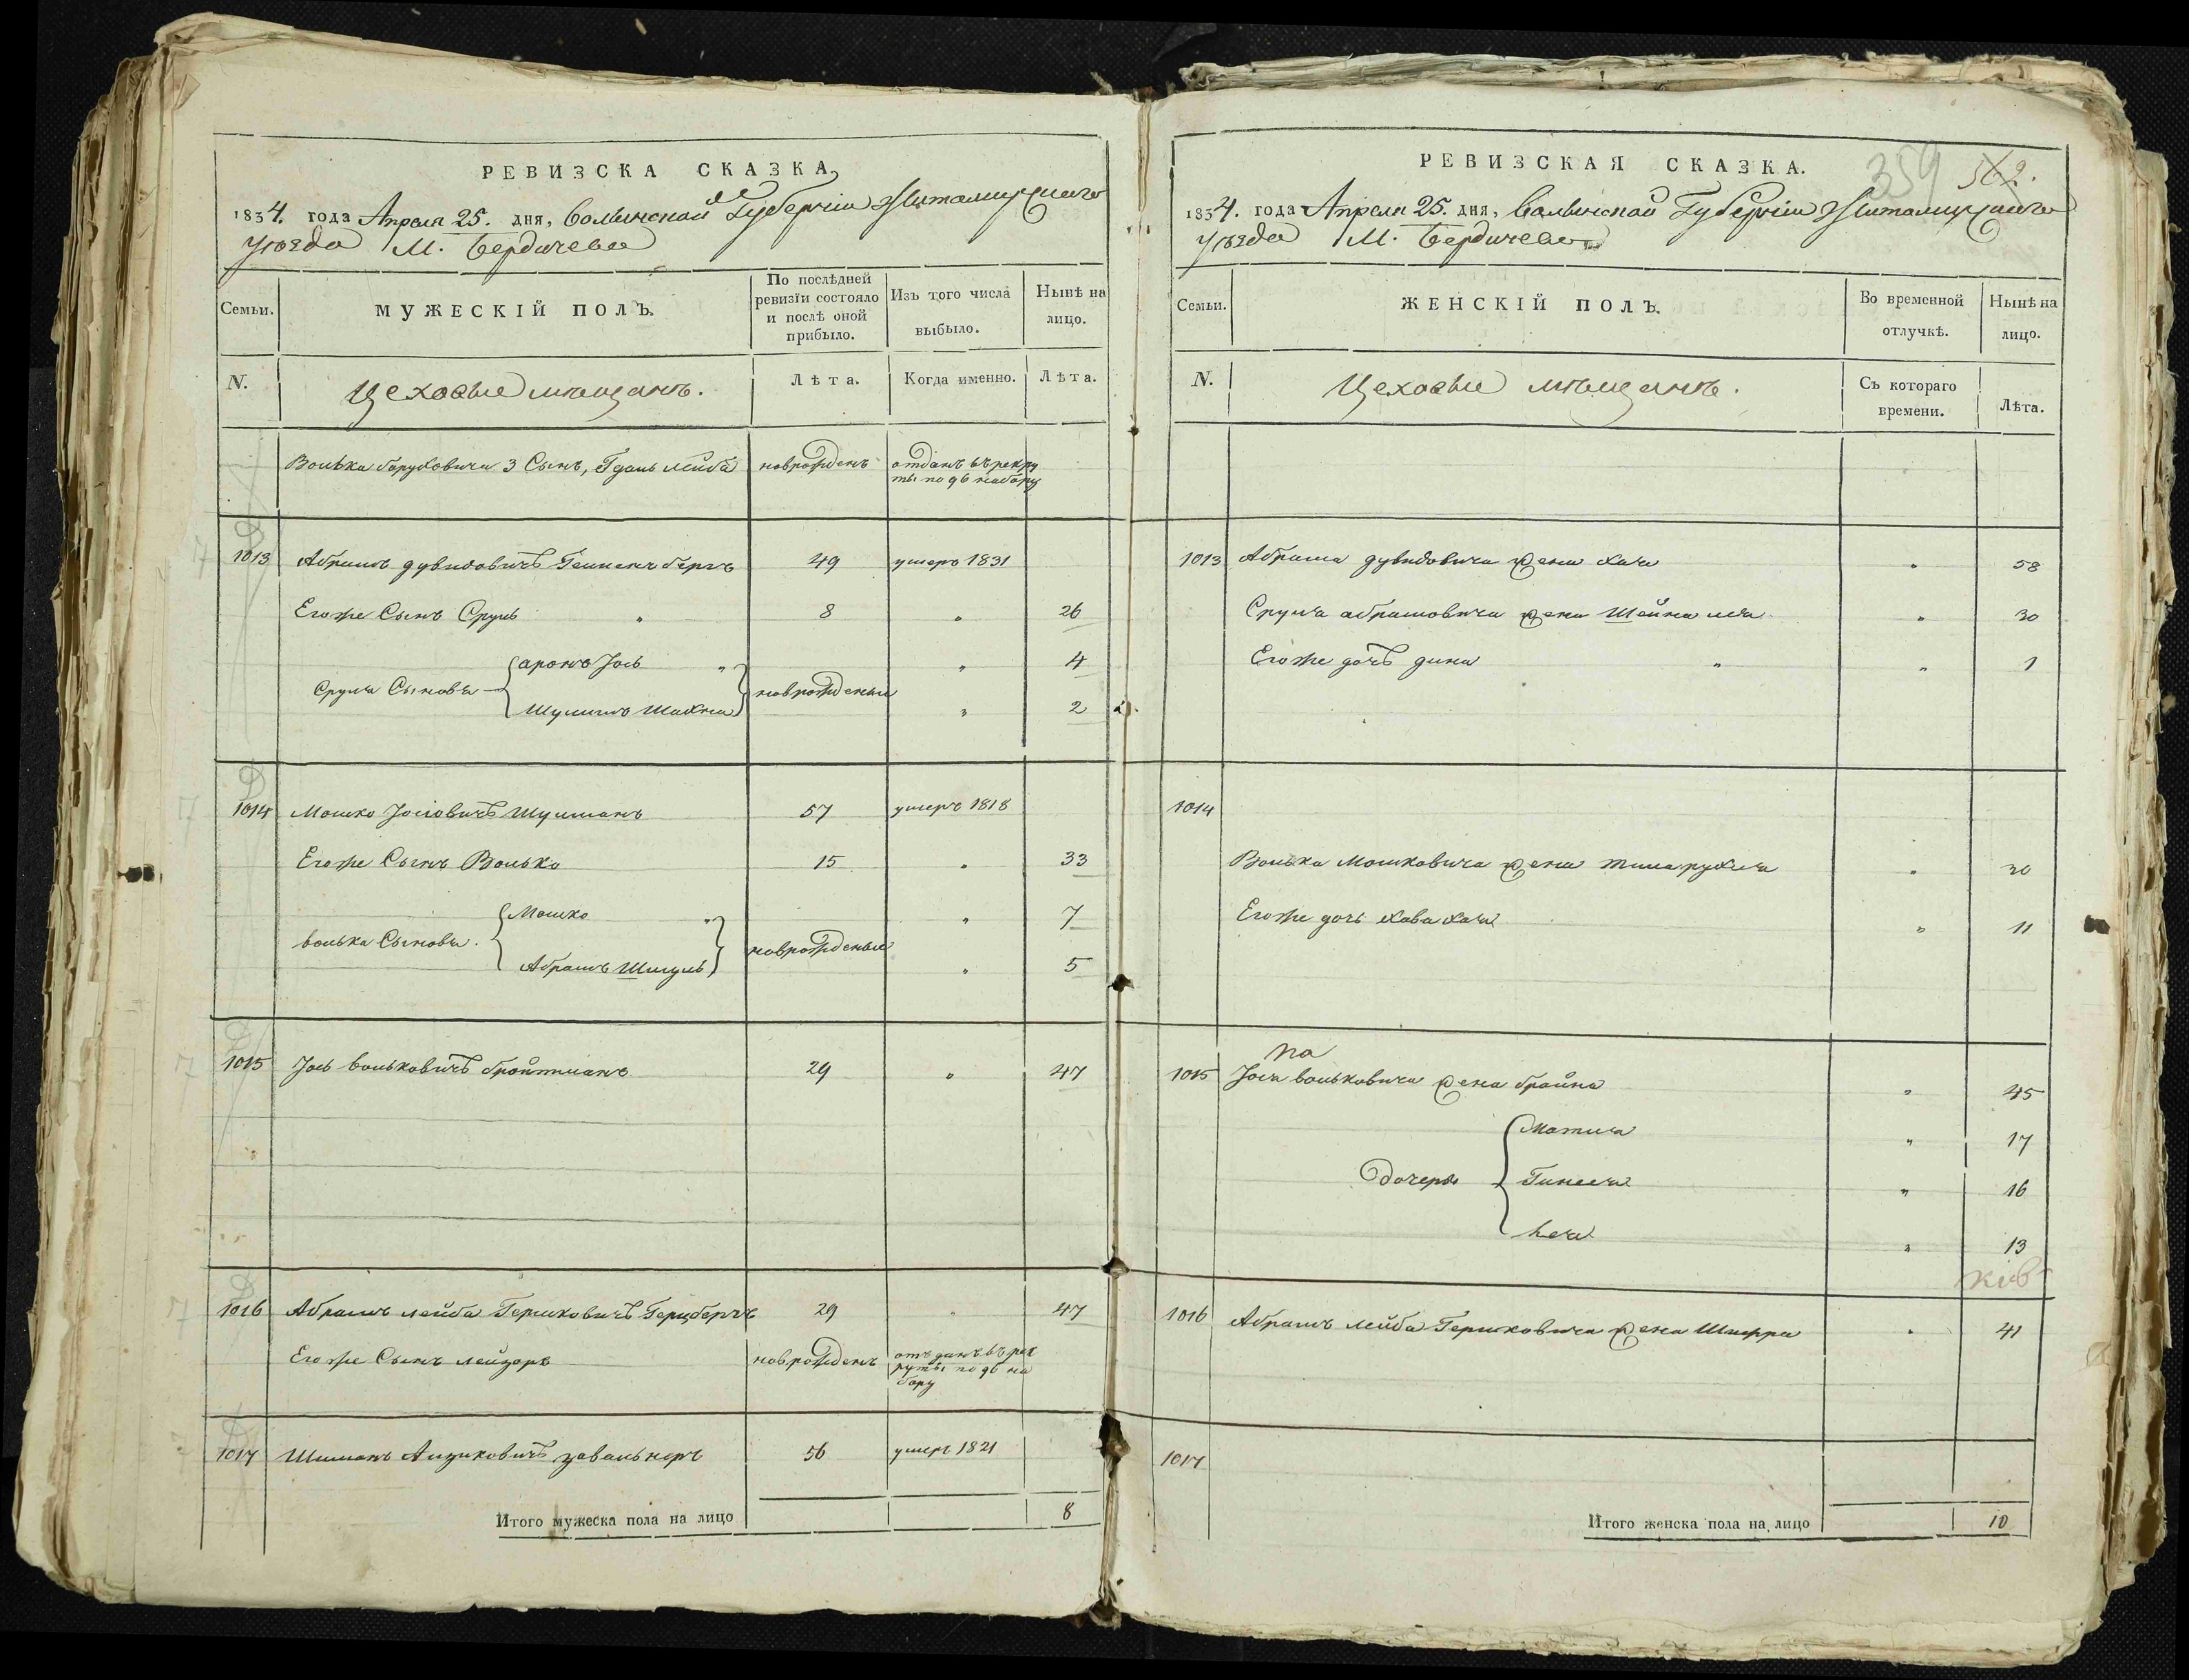 РЕВИЗСКА СКАЗКА
1834. года Апреля 25. дня, Волынской Губерніи Житомирскаго
уѣзда М. Бердичева
Семьи.
МУЖЕСКІЙ ПОЛЪ.
По послѣдней
ревизіи состояло
и послѣ оной
прибыло.
Изъ того числа
выбыло.
Нынѣ на
лицо.
N.
Цеховые мѣщанѣ.
Лѣта.
Когда именно.
Лѣта.
Волька боруховича 3 Сынъ, Гдаль лейба новрожденъ отданъ въ рекру
ты по 96 набору
1013 Абрамъ дувидовичъ 49 умеръ 1831
Егоже Сынъ Сруль " 8 " 26
аронъ Іось " " 4
Сруля Сыновья новрожденыи
Шулимъ Шахна " 2
1014 Мошко Іосіовичъ Шулманъ 57 умеръ 1818
Егоже Сынъ Волько 15 " 33
Мошко " " 7
волька Сыновья. новрожденые
Абрамъ Шмуль " 5
1015 Іось вольковичъ бройтманъ 29 " 47
1016 Абрамъ лейба Гершковичъ Герцбергъ 29 " 47
Егоже Сынъ лейзоръ новрожденъ отъданъ въ рек
руты по 96 на
бору
1017 Шиманъ Аизиковичъ завальнеръ 56 умеръ 1821
Итого мужеска пола на лицо 8
РЕВИЗСКАЯ СКАЗКА.
359 562.
1834. года Апреля 25. дня, Волынской Губерніи Житомирскаго
уѣзда М. Бердичева
Семьи.
ЖЕНСКІЙ ПОЛЪ.
Во временной
отлучкѣ.
Нынѣ на
лицо.
N.
Цеховые мѣщанѣ.
Съ котораго
времени.
Лѣта.
1013 Абрама дувидовича жена хая " 58
Сруля абрамовича жена Шейна лея " 30
Егоже дочъ дина " " 1
1014
Волька Мошковича жена " 30
Егоже дочь хава хая " 11
на
1015 Іося вольковича жена брайна " 45
" 17
Дочеры " 16
" 13
1016 Абрамъ лейба Гершковича жена Шифра " 41
1017
Итого женска пола на лицо 10